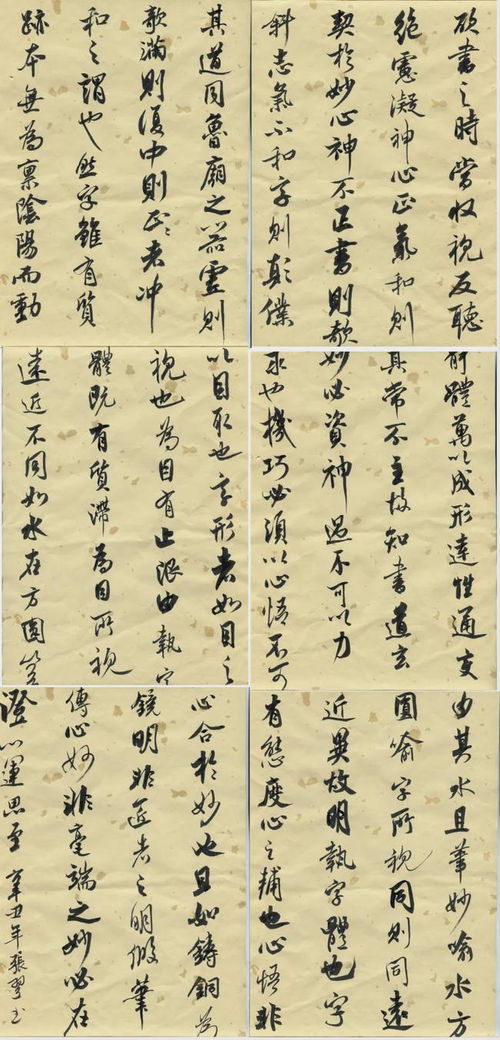 欲書之時當收視反聽
絕慮凝神心正氣和則
契於妙心神不正書則欹
斜志氣不和字則顛僕
其道同魯廟之器靈則
欹滿則復中則正正者冲
和之謂也然字雖有質
跡本無為稟陰陽而動
靜體萬以成形達性通變
其常不主故知書道玄
妙必資神遇不可以力
求也機巧必須以心悟不可
以目取也字形者如目之
視也為目有止限由執字
體既有質滯為目所視
遠近不同如水在方圓豈
由其水且筆妙喻水方
圓喻字所視同則同遠
近異故明執字體也字
有態度心之輔也心悟非
心合於妙也且如鑄銅為
鏡明非匠者之明假筆
傳心妙非毫端之妙必在
澄心運思至 辛丑年張翠書